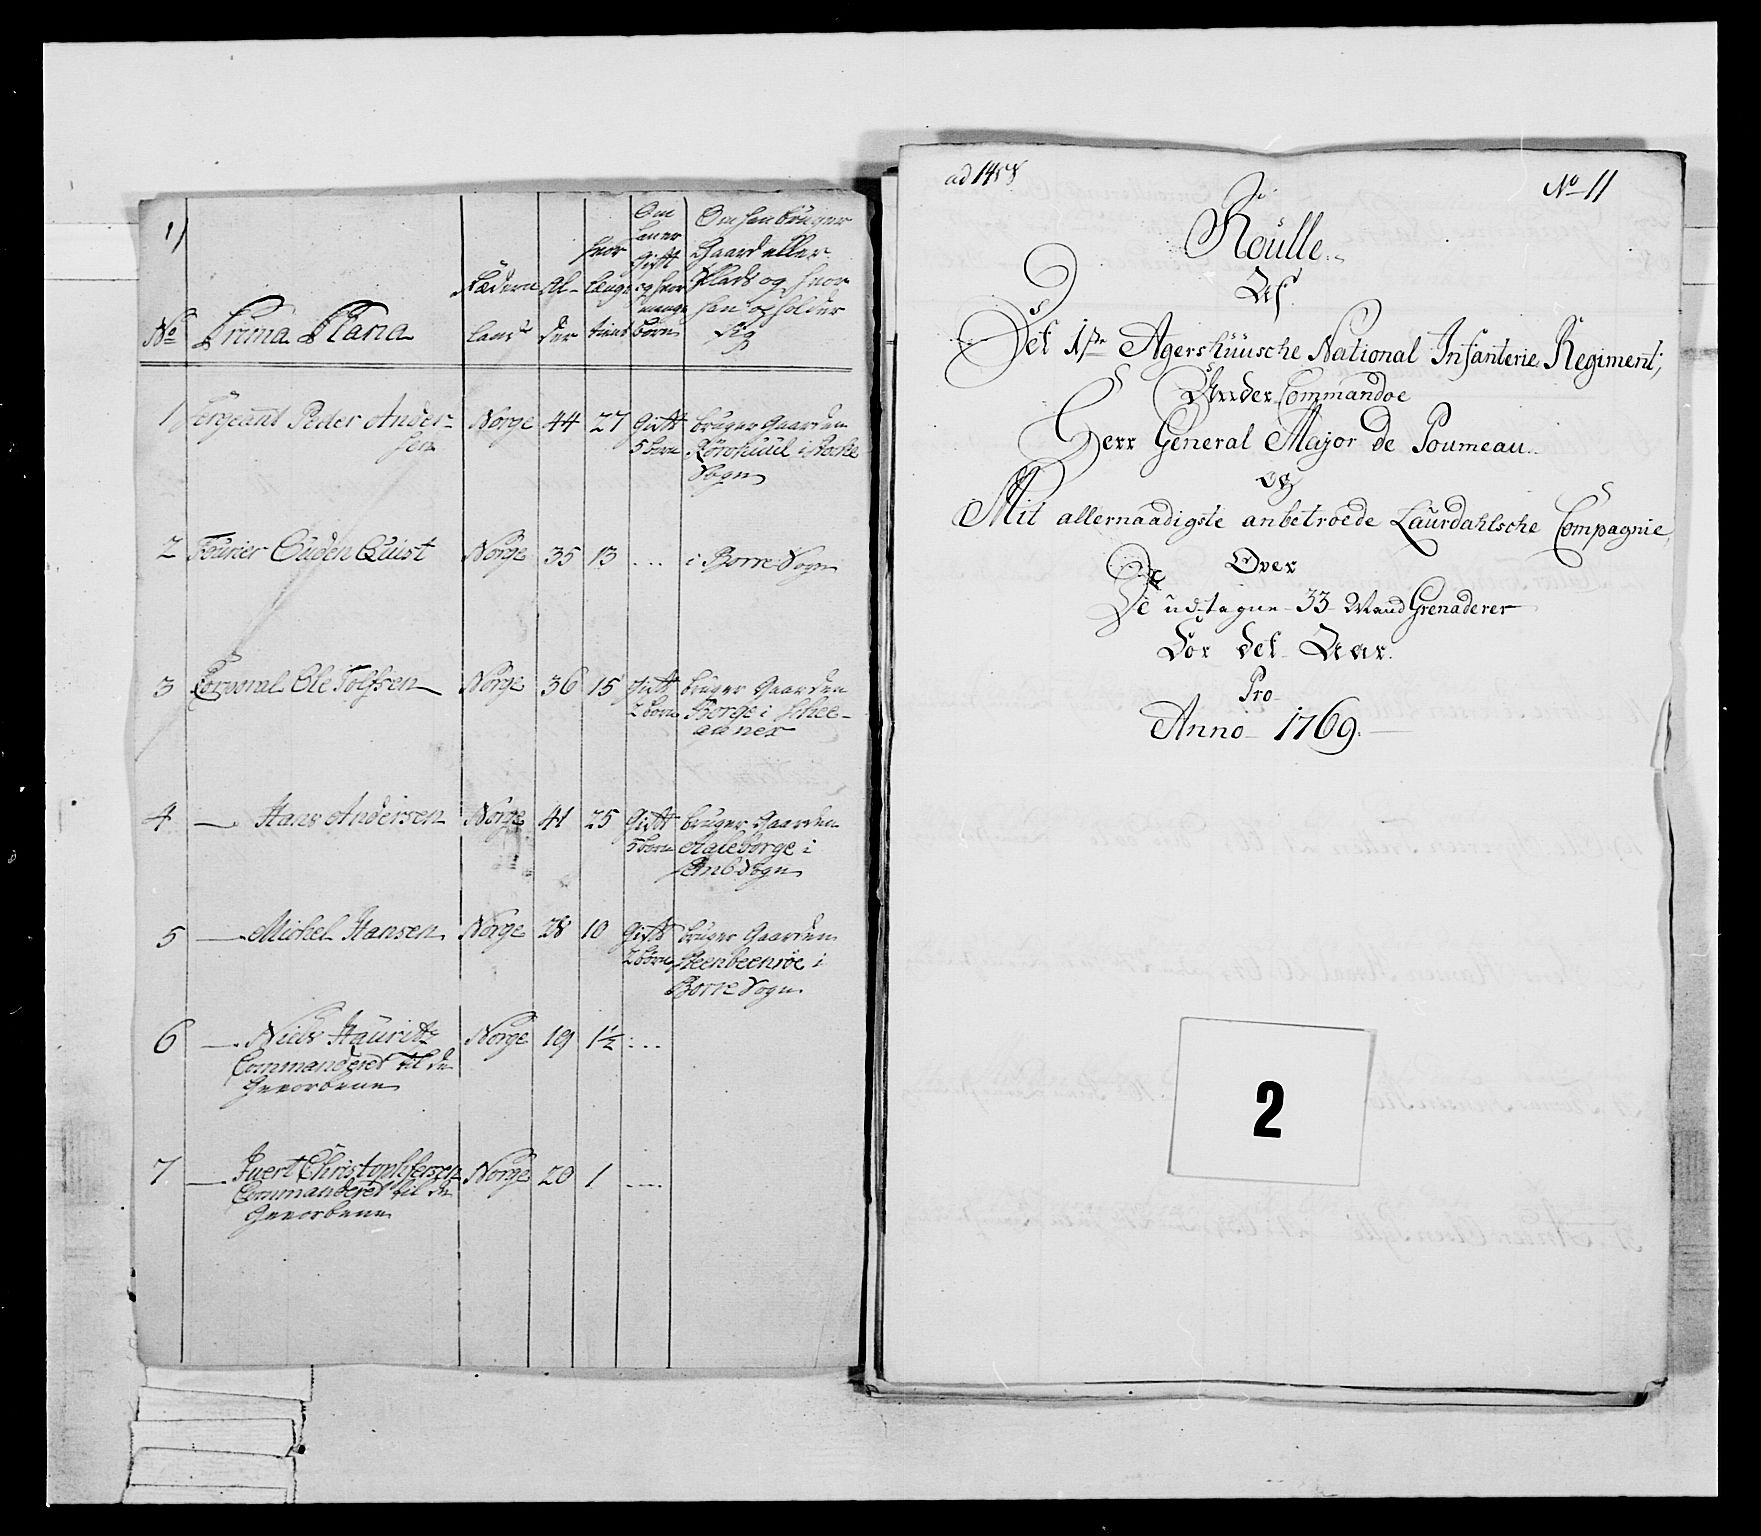 1)
No
Prima Plana
Fæderne
Land
Al-
der
hvor
længe
tient
Om
han er
Gift
og hvor
mange
børn
Om han bruger
Gaard eller
Plads og hvor
han opholder
sig
1 Sergeant Peder Ander- Norge 44 27 Gift bruger Gaarden
sen 5 børn i
Sogn
2 Fourier Ouden Quist Norge 35 13 ... i Borre Sogn
3 Corporal Ole Tolfsen Norge 36 15 Gift bruger Gaarden
2 børn Borge i Schee-
4 — Hans Andersen Norge 41 25 Gift bruger Gaarden
5 børn i
Sogn
5 — Michel Hansen Norge 28 10 Gift bruger Gaarden
2 børn Steenbeenröe i
Borre Sogn
6 — Niels Hauritz Norge 19 1½ ...
Commanderet til de
Gevorbene
7 — Ivert Christophersen Norge 20 1 ....
Commanderet til de
Gevorbene
ad 1458
No 11
Roulle
Af
Det 1ste Agershuusche National Infanterie Regiment,
Under Commandoe
Herr General Major de Poumeau
og
Mit allernaadigste anbetroede Laurdahlsche Compagnie,
Over
De udtagne 33 Mand Grenaderer
For det Aar
Pro
Anno 1769.
2